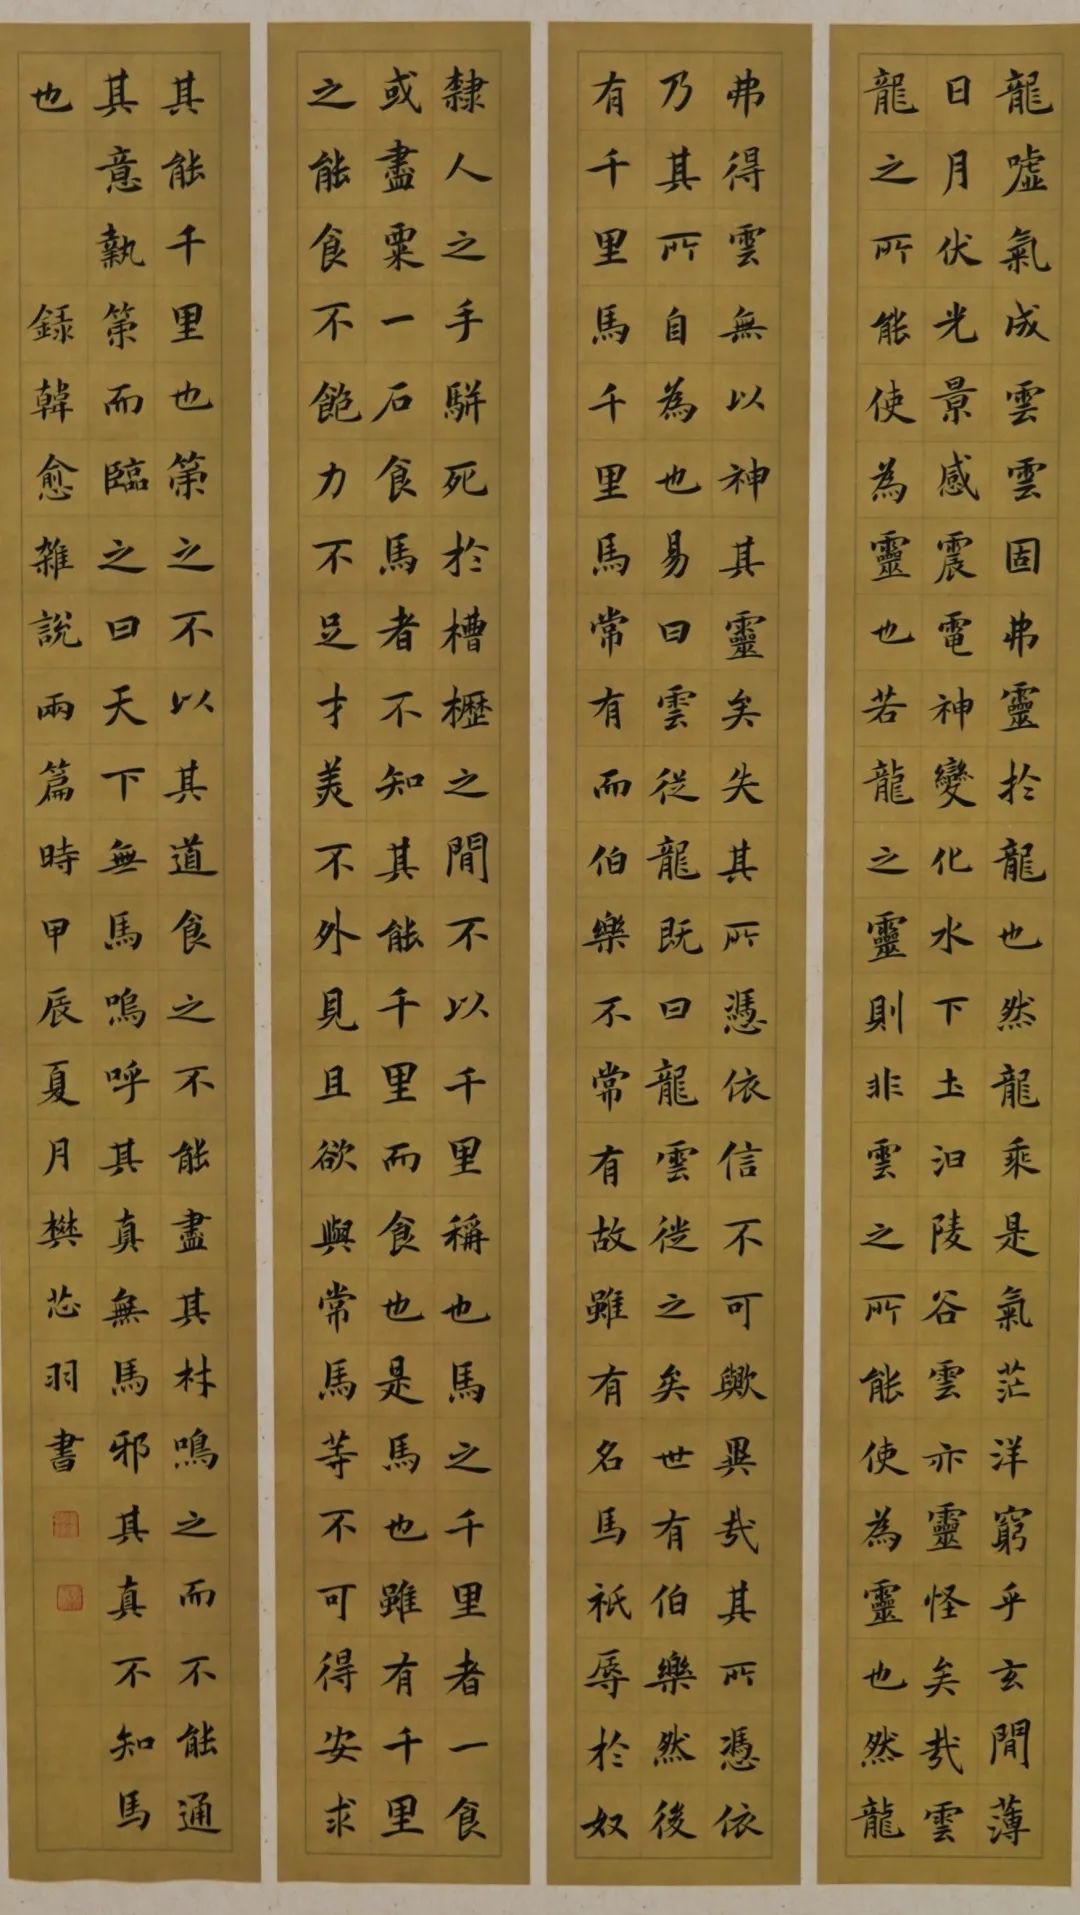 龍噓氣成雲雲固弗靈於龍也然龍乘是氣茫洋窮乎玄閒薄
日月伏光景感震電神變化水下土汩陵谷雲亦靈怪矣哉雲
龍之所能使為靈也若龍之靈則非雲之所能使為靈也然龍
弗得雲無以神其靈矣失其所憑依信不可歟異哉其所憑依
乃其所自為也易曰雲從龍既曰龍雲從之矣世有伯樂然後
有千里馬千里馬常有而伯樂不常有故雖有名馬祇辱於奴
隸人之手駢死於槽櫪之閒不以千里稱也馬之千里者一食
或盡粟一石食馬者不知其能千里而食也是馬也雖有千里
之能食不飽力不足才美不外見且欲與常馬等不可得安求
其能千里也策之不以其道食之不能盡其材鳴之而不能通
其意執策而臨之曰天下無馬嗚呼其真無馬邪其真不知馬
也 録韓愈雜說兩篇時甲辰夏月樊芯羽書